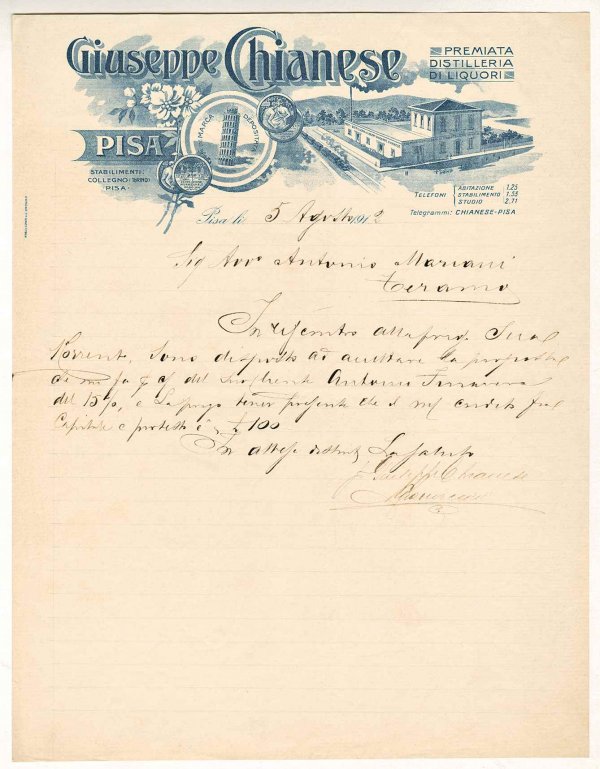 Giuseppe Chianese
PREMIATA
DISTILLERIA
DI LIQUORI
MARCA DEPOSITATA
PISA
STABILIMENTI:
COLLEGNO (TORINO)
PISA
TELEFONI
ABITAZIONE 1.25
STABILIMENTO 1.33
STUDIO 2.71
Telegrammi: CHIANESE-PISA
Pisa li 5 Agosto 1912
Sig Avvo Antonio Mariani
Teramo
In riscontro alla pred. Sua
corrente, sono disposto ad accettare la proposta
di del Antonio
del 15%, e La prego tener presente che il mio credito fra
Capitale e protesto è 100
In attesa La saluto
Giuseppe Chianese